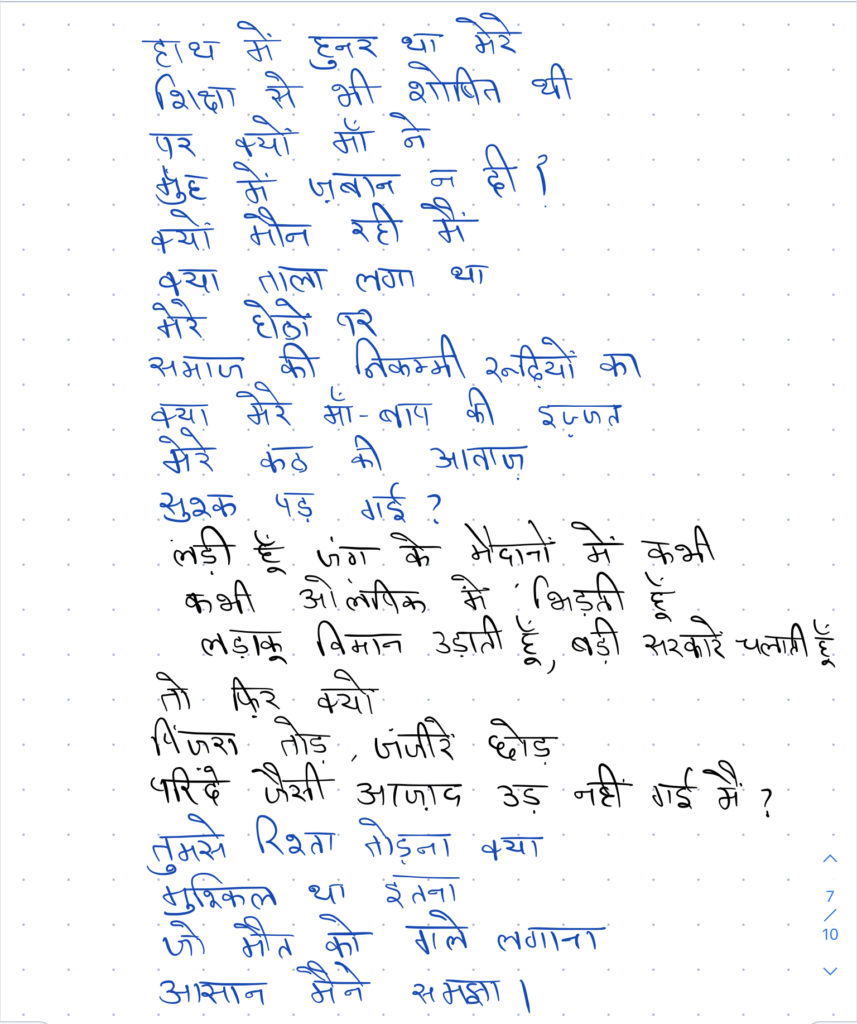 हाथ में हुनर था मेरे
शिक्षा से भी शोषित थी
पर क्यों माँ ने
मुँह में ज़बान न दी ?
क्यों मौन रही मैं
क्या ताला लगा था
मेरे होठों पर
समाज की निकम्मी रूढ़ियों का
क्या मेरे माँ-बाप की इज़्ज़त
मेरे कंठ की आवाज़
सुश्क पड़ गई ?
लड़ी हूँ जंग के मैदानों में कभी
कभी ओलंपिक में भिड़ती हूँ
लड़ाकू विमान उड़ाती हूँ, बड़ी सरकारें चलाती हूँ
तो फ़िर क्यों
पिंजरा तोड़, जंजीरें छोड़
परिंदे जैसी आज़ाद उड़ नहीं गई मैं ?
तुमसे रिश्ता तोड़ना क्या
मुश्किल था इतना
जो मौत को गले लगाना
आसान मैंने समझा।
7
/
10